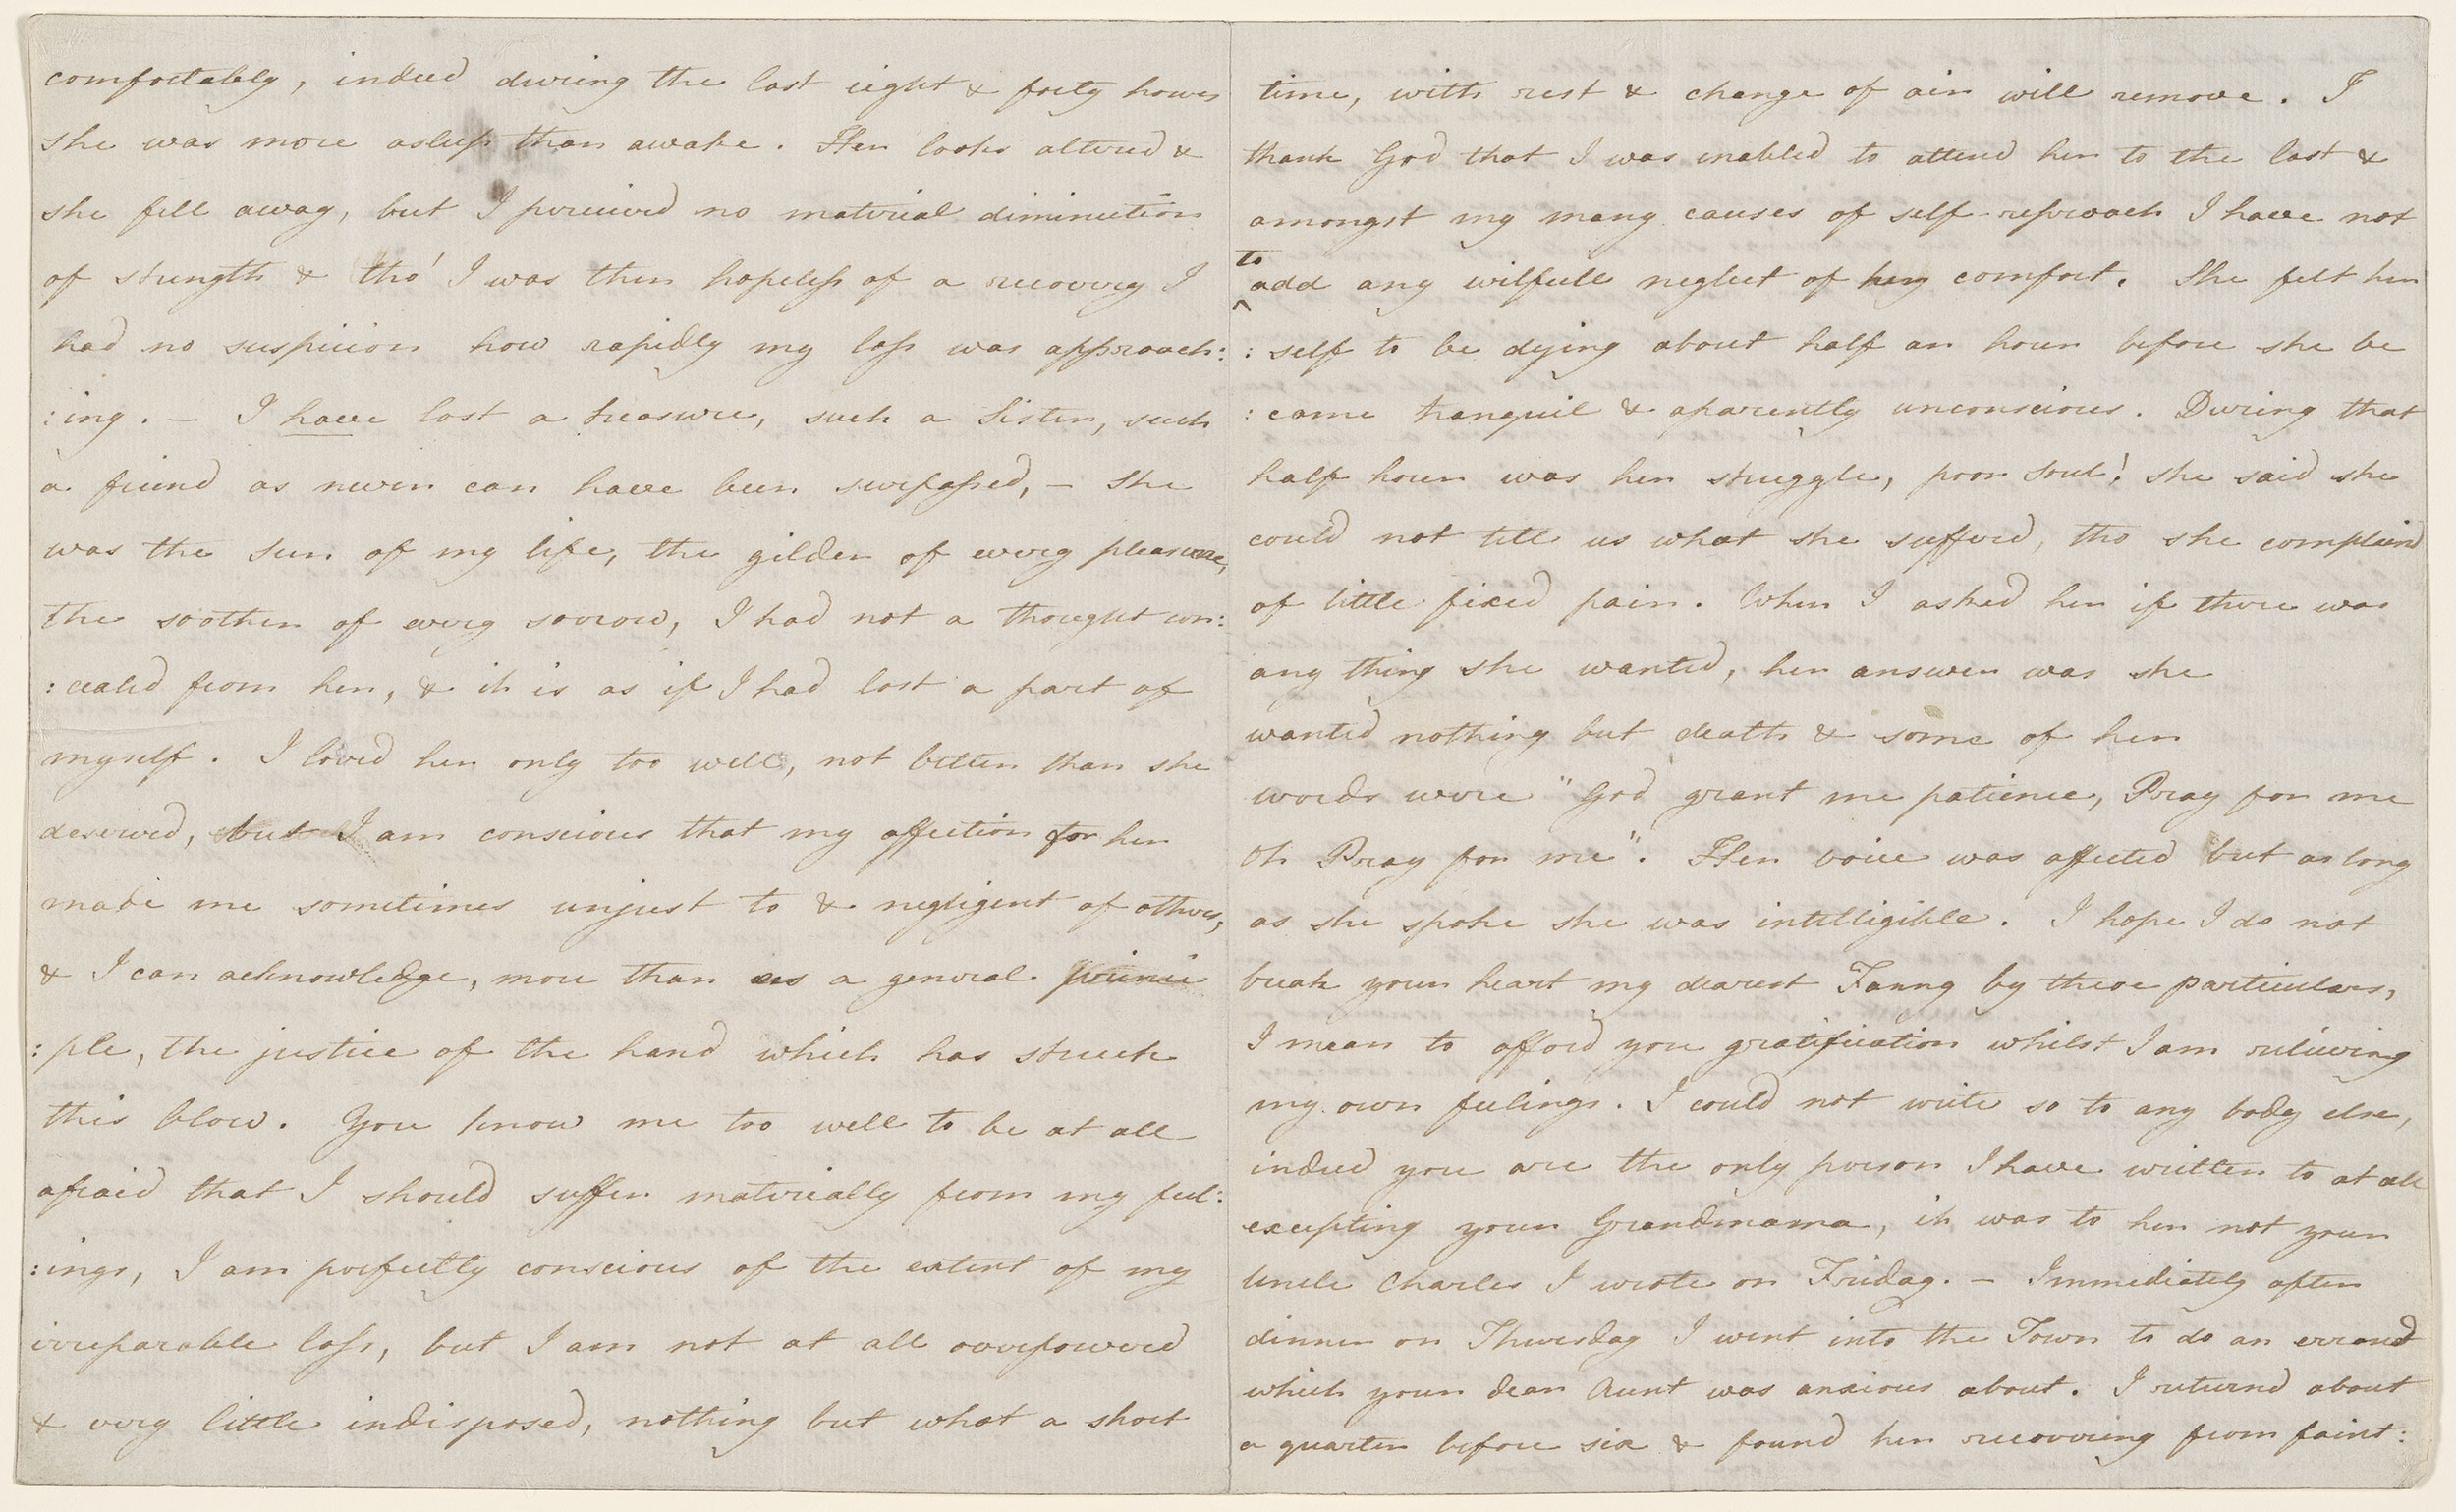 comfortably, indeed during the last eight & forty hours
she was more asleep than awake. Her looks altered &
she fell away, but I perceived no material diminution
of strength & tho' I was then hopeless of a recovery I
had no suspicion how rapidly my loss was approach:
:ing. — I have lost a treasure, such a Sister, such
a friend as never can have been surpassed, — She
was the Sun of my life, the gilder of every pleasure,
the soother of every sorrow, I had not a thought con:
:cealed from her, & it is as if I had lost a part of
myself. I loved her only too well, not better than she
deserved, but I am conscious that my affection for her
made me sometimes unjust to & negligent of others,
& I can acknowledge, more than as a general princi
:ple, the justice of the hand which has struck
this blow. You know me too well to be at all
afraid that I should suffer materially from my feel:
:ings, I am perfectly conscious of the extent of my
irreparable loss, but I am not at all overpowered
& very little indisposed, nothing but what a short
time, with rest & change of air will remove. I
thank God that I was enabled to attend her to the last &
amongst my many causes of self-reproach I have not
to add any wilfull neglect of her comfort. She felt her
:self to be dying about half an hour before she be
:came tranquil & aparently unconscious. During that
half hour was her struggle, poor Soul! she said she
could not tell us what she sufferd, tho she complaind
of little fixed pain. When I asked her if there was
any thing she wanted, her answer was she
wanted nothing but death & some of her
words were "God grant me patience, Pray for me
Oh Pray for me". Her voice was affected but as long
as she spoke she was intelligible. I hope I do not
break your heart my dearest Fanny by these particulars,
I mean to afford you gratification whilst I am relieving
my own feelings. I could not write so to any body else,
indeed you are the only person I have written to at all
excepting your Grandmama, it was to her not your
Uncle Charles I wrote on Friday. — Immediately after
dinner on Thursday I went into the Town to do an errand
which your dear Aunt was anxious about. I returnd about
a quarter before six & found her recovering from faint: